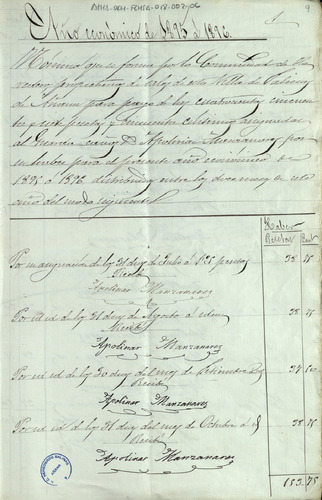 AMSA-UCH-FCHSA-018-002-06
9
Año económico de 1895 á 1896.
Nómina que se forma por la Comunidad de
propietarios de esta Villa de Salinas
de Añana para pago de los cuatrocientos cincuenta
y seis pesetas y cincuenta céntimos asignadas
al Guarda Apolinar Manzanares por
su sueldo para el presente año económico de
1895 á 1896 distribuidas entre los doce meses de este
año del modo siguiente
Haber
Pesetas Cent
Por su asignación de los 31 días de Julio á 1'25 pesetas 38 75
Recibí
Apolinar Manzanares
Por id id de los 31 días de Agosto á idem 38 75
Recibí
Apolinar Manzanares
Por id id de los 30 días del mes de Setiembre 37 50
Recibí
Apolinar Manzanares
Por id id de los 31 días del mes de Octubre á id 38 75
Recibí
Apolinar Manzanares
153 75